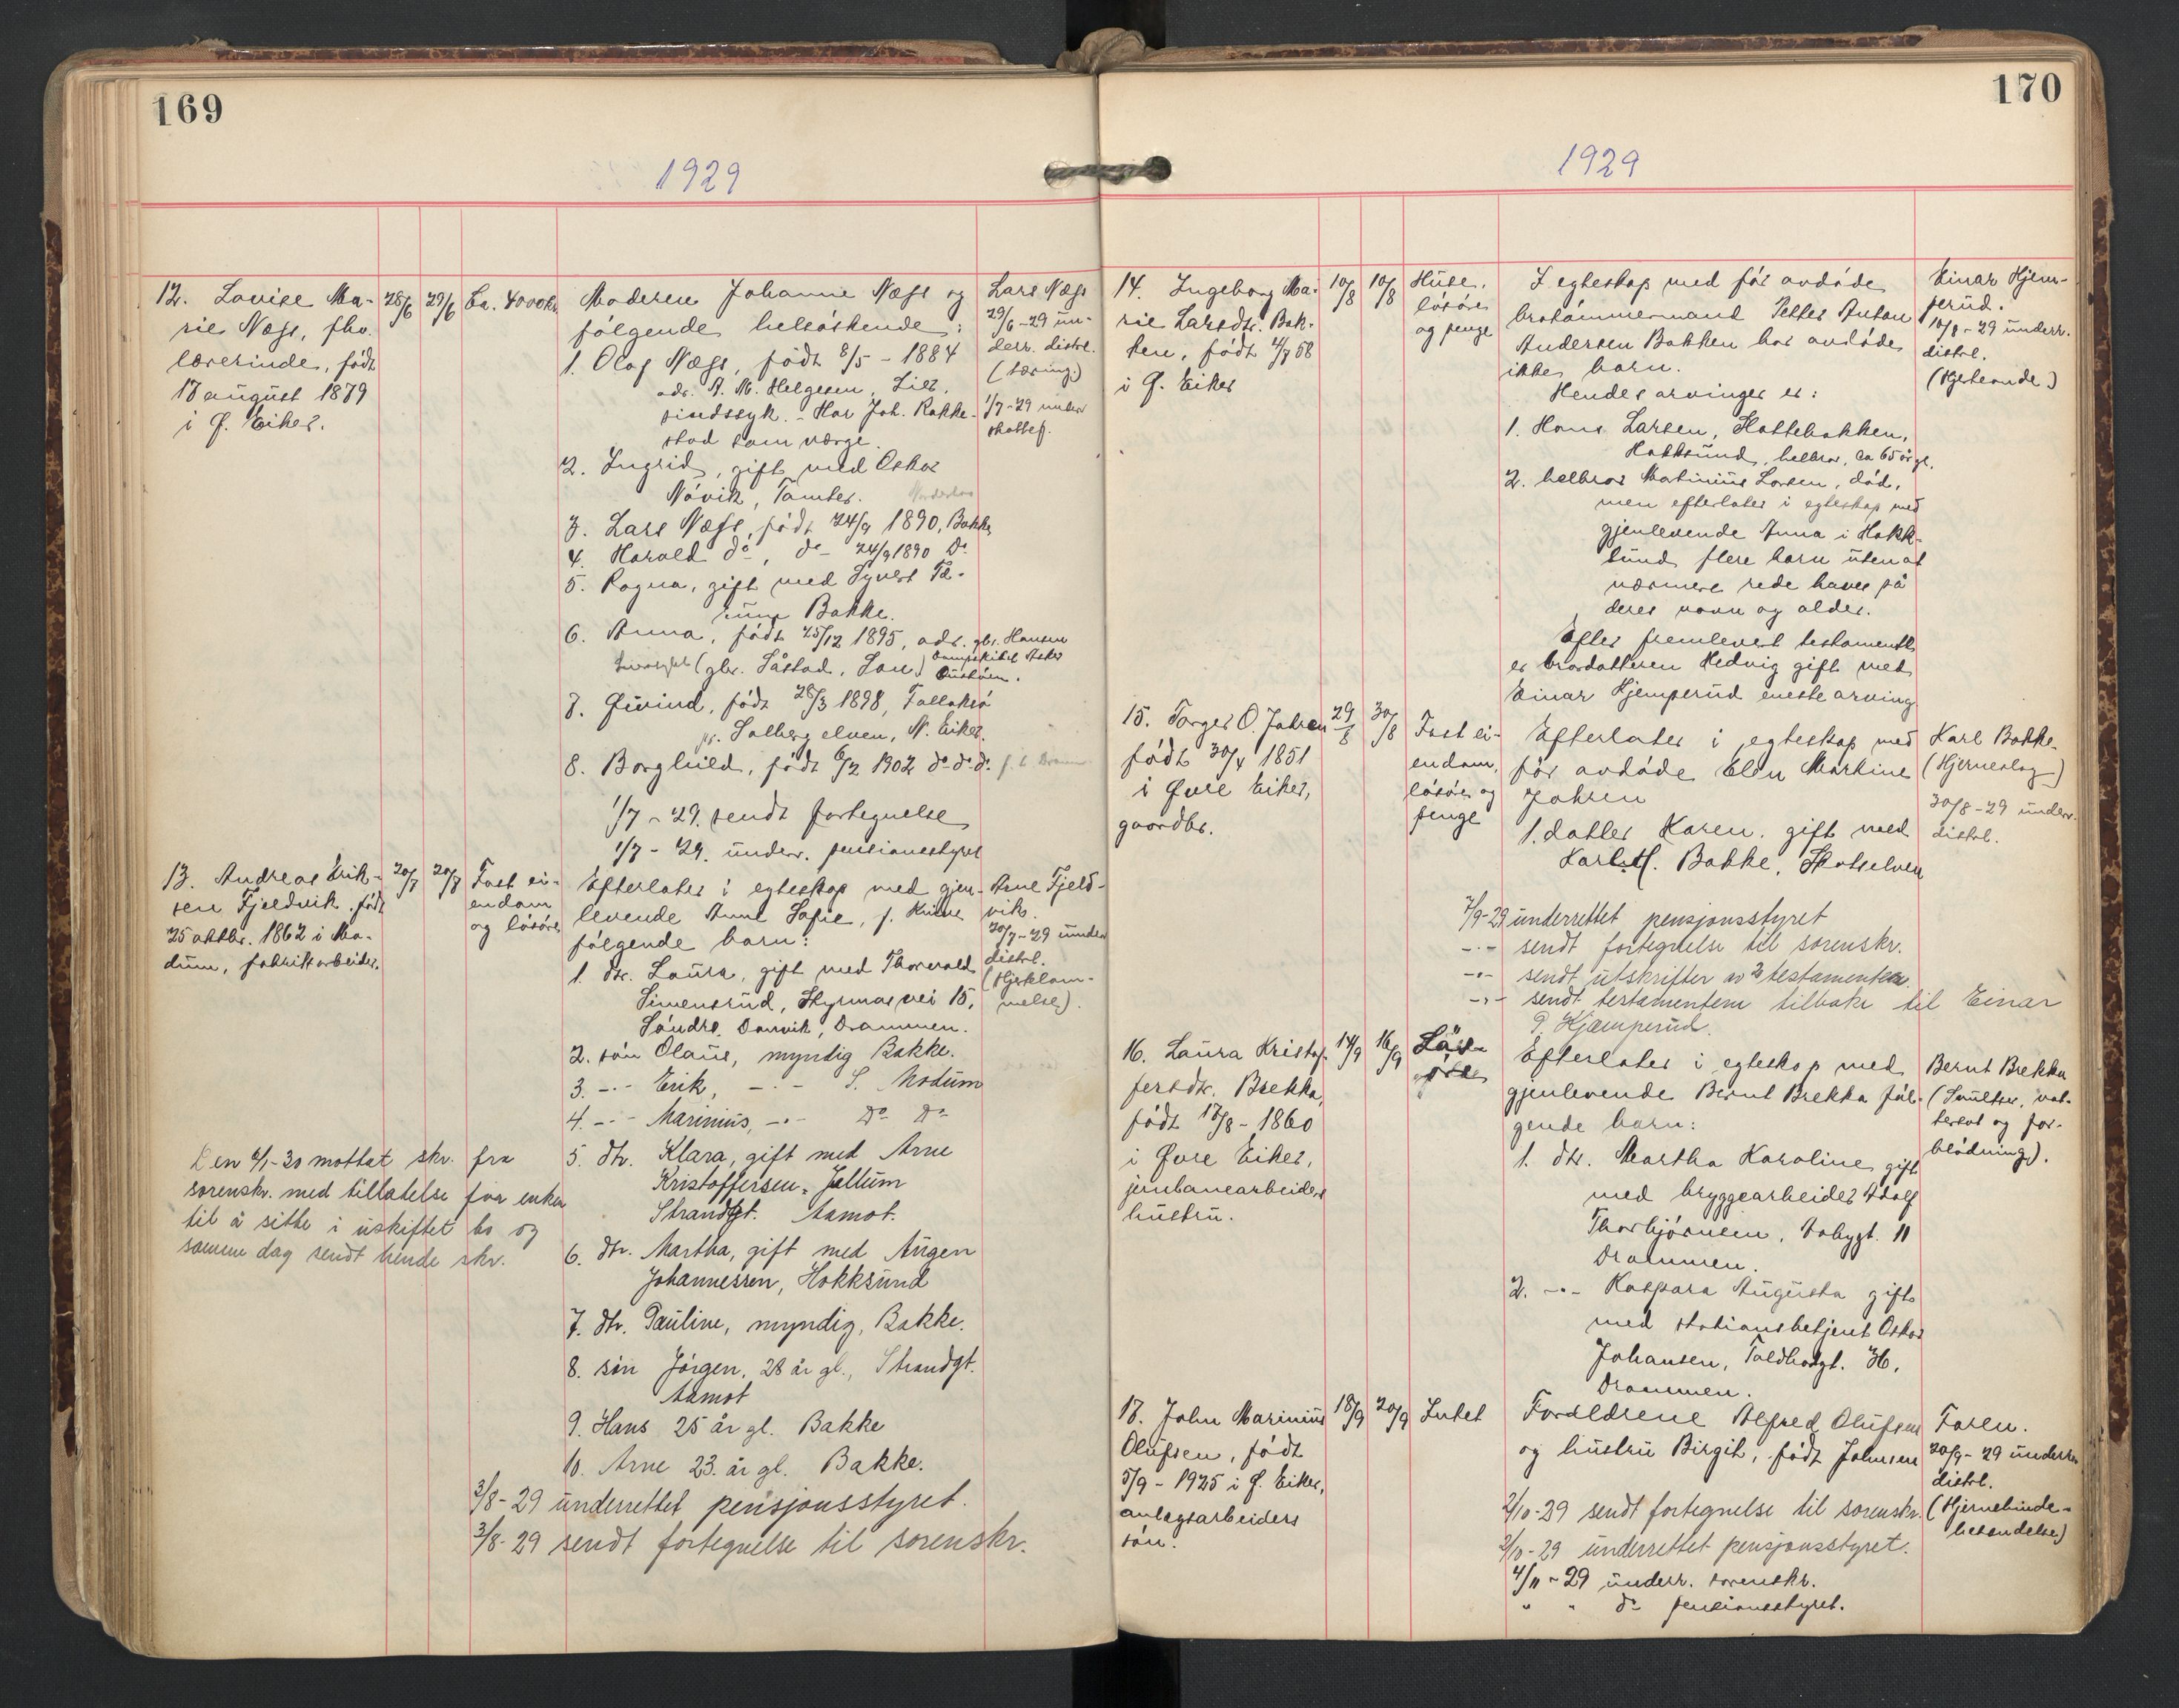 169
1929
12. Lovise Ma-
rie Næss, fhv.
lærerinde, født
17 august 1879
i Ø. Eiker.
28/6
29/6
Ca. 4000 kr.
Moderen Johanne Næss og
følgende helsøskende:
1. Olaf Næss, født 8/5 - 1884
adr. A. M. Helgesen, Lier.
sindssyk. - Har Joh. Rakke-
stad som værge.
2. Ingrid, gift med Oskar
Nøvik, Tamter.
3. Lars Næss, født 24/9 1890, Bakke
4. Harald do, do - 24/9 1890 Do
5. Ragna, gift med Syvert Th-
rune Bakke.
6. Anna, født 25/12 1895, adr. gbr. Hansen
(gbr. Såstad, Lan.) Dampskibet Asker
7. Øivind, født 28/3 1898, Tollaksø
pr. Solbergelven, N. Eiker.
8. Borghild, født 6/2 1902 do-do-do.
1/7 - 29. sendt fortegnelse
1/7 - 29. underr. pensionsstyret
Lars Næss
29/6 - 29 un-
derr. distrl.
(tæring)
1/7 - 29 underr
skattef.
13. Andreas Erik-
sen Fjeldvik, født
25 oktbr. 1862 i Mo-
dum, fabrikkarbeider.
20/7
20/7
Fast ei-
endom
og løsøre
Efterlater i egteskap med gjen-
levende Anne Sofie, f.
følgende barn:
1. dtr. Laura, gift med Thorvald
Simensrud, Styrmosvei 15,
Søndre Danvik, Drammen.
2. søn Olaus, myndig Bakke.
3. -"- Erik, -"- S. Modum
4. -"- Marinius, -"- Do Do
5. dtr. Klara, gift med Arne
Kristoffersen, Jellum
Strandgt. Aamot.
6. dtr. Martha, gift med Augen
Johannessen, Hokksund
7. dtr. Pauline, myndig, Bakke.
8. søn Jørgen, 28 år gl., Strandgt.
Aamot
9. Hans 25 år gl. Bakke
10. Arne 23. år gl. Bakke.
3/8-29 underrettet pensjonsstyret.
3/8-29 sendt fortegnelse til sorenskr.
Arne Fjeld-
vik.
20/7-29 underr
distrl.
(Hjertelam-
melse).
Den 4/1-30 mottat skr. fra
sorenskr. med tillatelse for enken
til å sitte i uskiftet bo og
samme dag sendt hende skr.
170
1929
14. Ingeborg Ma-
rie Larsdtr. Bak-
ken, født 4/7 58
i Ø. Eiker
10/8
10/8
Huse,
løsøre
og penge
I egteskap med før avdøde
brotømmermand Petter Anton
Andersen Bakken har avdøde
ikke barn.
Hendes arvinger er:
1. Hans Larsen, Hattebakken,
Hokksund, helbror, ca 65 år gl.
2. helbror Matinius Larsen, død,
men efterlater i egteskap med
gjenlevende Anna i Hokk-
sund flere barn uten at
nærmere rede haves på
deres navn og alder.
Efter fremlevert testamente
er brordatteren Hedvig gift med
Einar Hjemperud eneste arving
Einar Hjem-
perud.
10/8 - 29 underr.
distrl.
(Hjerteonde)
15. Torger O. Johren
født 30/4 1851
i Øvre Eiker,
gaardbr.
29/8
30/8
Fast ei-
endom,
løsøre og
penge
Efterlater i egteskap med
før avdøde Elen Martine
Johren
1. datter Karen, gift med
Karl M. Bakke, Skotselven
Karl Bakke
(Hjerneslag)
30/8 - 29 underr.
distrl.
7/9-29 underrettet pensjonsstyret
-"- sendt fortegnelse til sorenskr.
-"- sendt utskrifter av 2 testamenter.
-"- sendt testamentene tilbake til Einar
P. Hjemperud.
16. Laura Kristof-
fersdtr. Brekka,
født 17/8 - 1860
i Øvre Eiker,
jernbanearbeiders
hustru.
14/9
16/9
Løs-
øre
Efterlater i egteskap med
gjenlevende Bernt Brekka føl-
gende barn:
1. dtr. Martha Karoline gift
med bryggearbeider Adolf
Thorbjørnsen, Tobygt. 11
Drammen.
2. -"- Kaspara Augusta gift
med stationsbetjent Oskar
Johansen, Toldbodgt. 36,
Drammen.
Bernt Brekka
(Svulster, vat-
tersot og for-
blødning).
17. John Marinius
Olufsen, født
5/9 - 1925 i Ø. Eiker,
anlegsarbeiders
søn.
18/9
20/9
Intet
Forældrene Alfred Olufsen
og hustru Birgit, født Johnsen
Faren.
20/9 - 29 underr
distrl.
(Hjernehinde-
betendelse)
2/10-29 sendt fortegnelse til sorenskr.
2/10-29 underrettet pensjonsstyret.
4/11 - 29 underr. sorenskr.
" " do pensionsstyret.